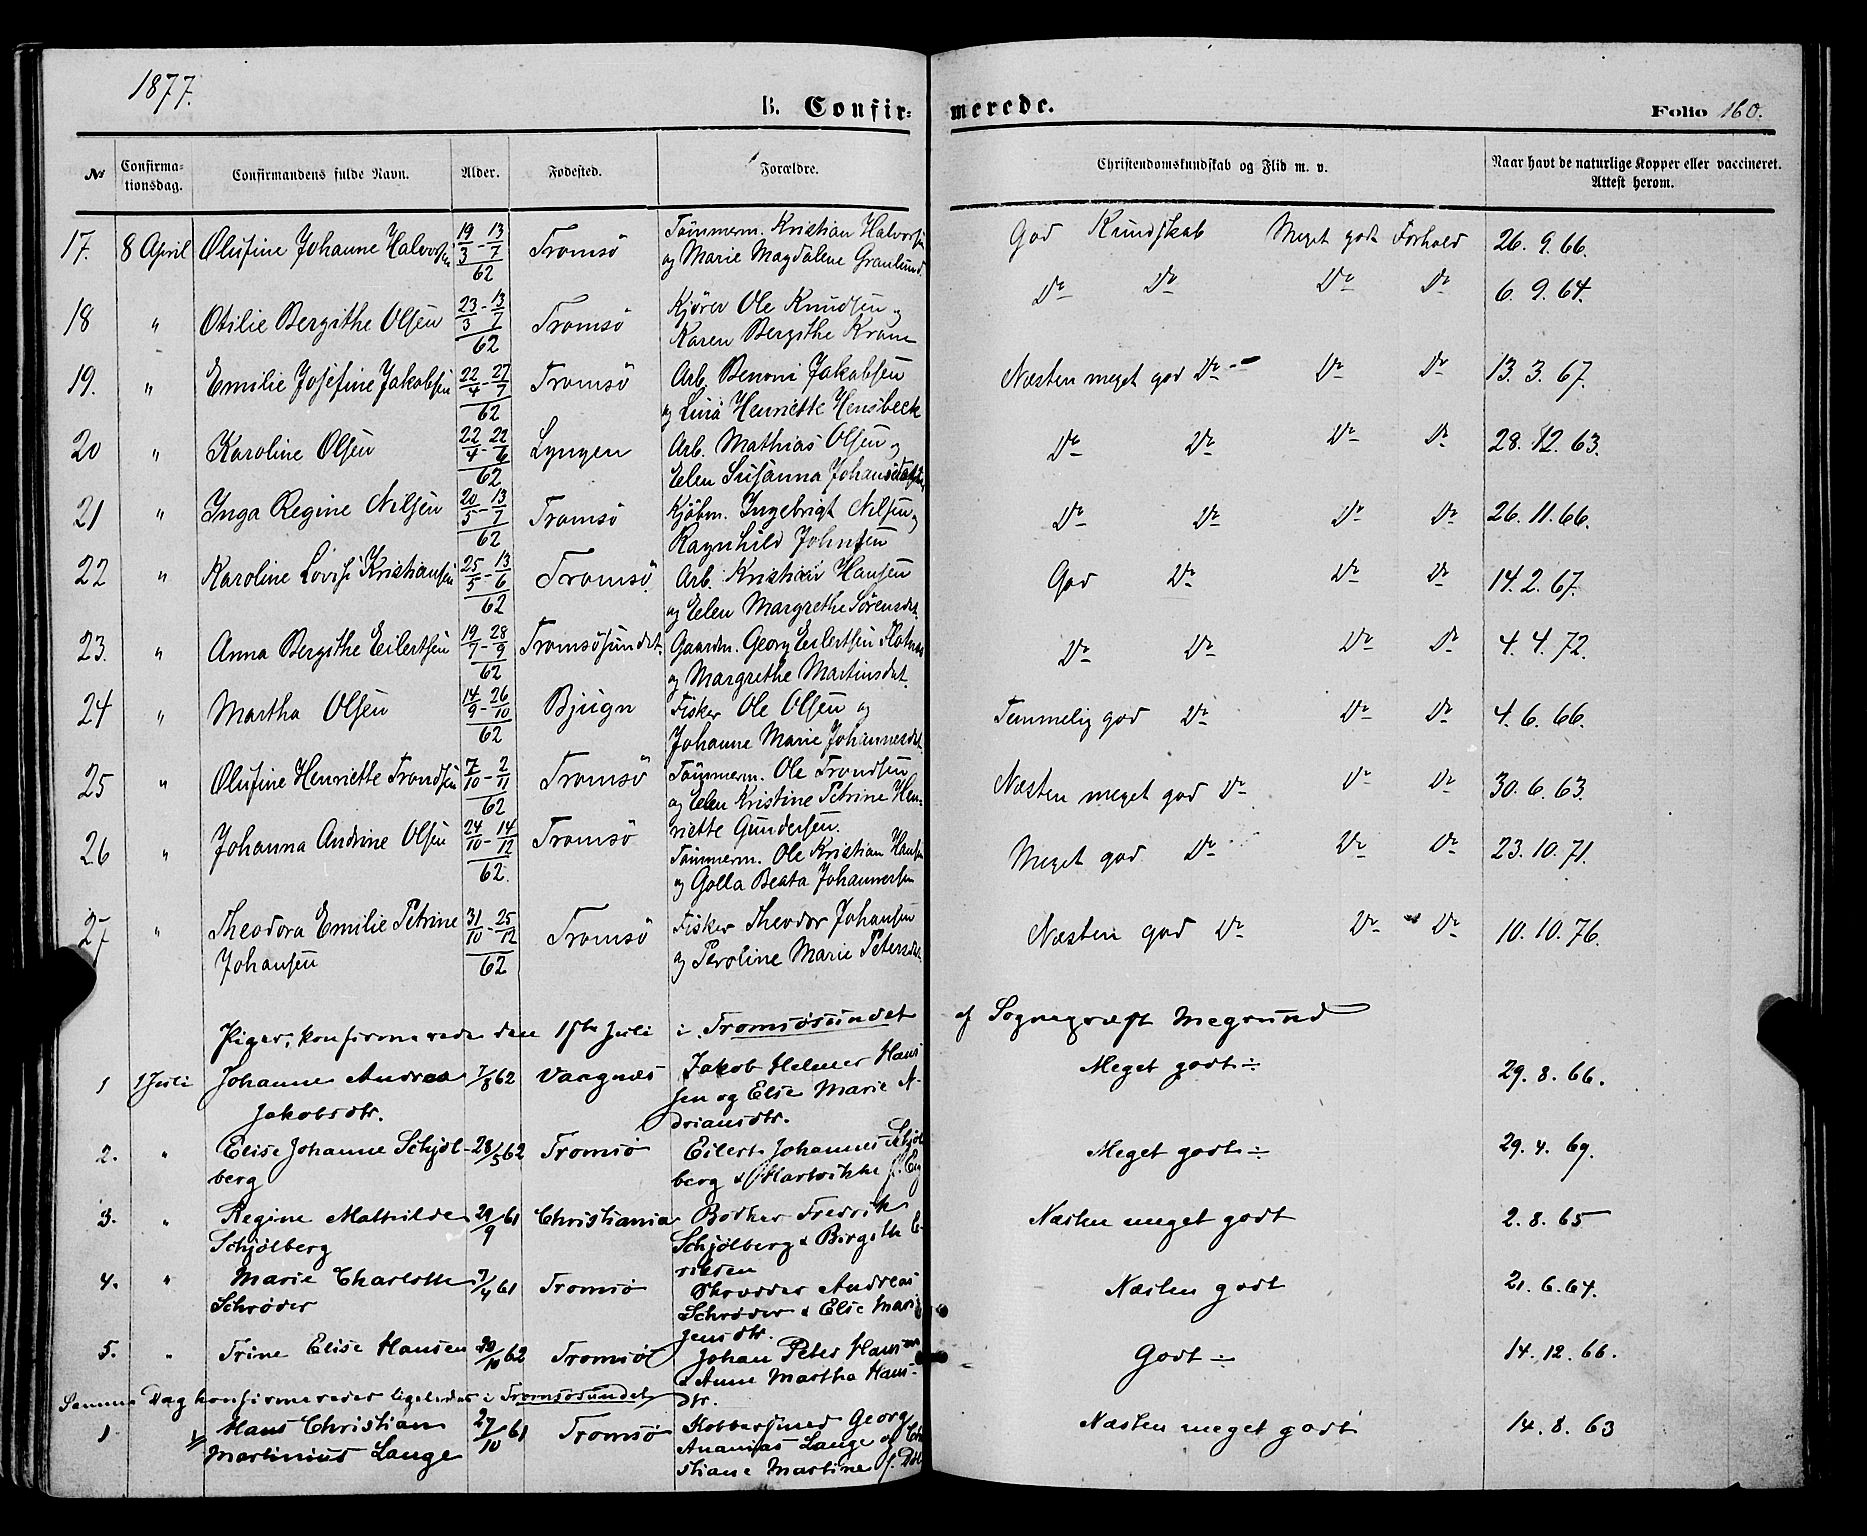 1877.
B. Confir-
merede.
Folio 160.
No
Confirma-
tionsdag.
Confirmandens fulde Navn.
Alder.
Fødested.
Forældre.
Christendomskundskab og Flid m. v.
Naar havt de naturlige Kopper eller vaccineret.
Attest herom.
17. 8 April Olufine Johanne Halvorsen 19/3 - 13/7 62 Tromsö Tömmerm. Kristian Halvorsen
og Marie Magdalene Granlund
God Kundskab Meget godt Forhold 26. 9. 66.
18 " Otilie Bergithe Olsen 23/3 - 13/7 62 Tromsö Kjörer Ole Knudsen og
Karen Bergithe Krane
Do Do Do Do 6. 9. 64.
19. " Emilie Josefine Jakobsen 22/4 - 27/7 62 Tromsö Arb. Benoni Jakobsen
og Lina Henriette Hensbeck
Næsten meget god Do Do Do 13. 3. 67.
20 " Karoline Olsen 22/4 - 22/6 62 Lyngen Arb. Mathias Olsen og
Elen Susanna
Do Do Do Do 28. 12. 63.
21 " Inga Regine Nilsen 20/5 - 13/7 62 Tromsö Kjöbm. Ingebrigt Nilsen og
Ragnhild Johnsen
Do Do Do Do 26. 11. 66.
22 " Karoline Lovise Kristiansen 25/5 - 13/6 62 Tromsö. Arb. Kristian Hansen
og Elen Margrethe Sörensdat.
God Do Do Do 14. 2. 67.
23. " Anna Bergithe Eilertsen 19/7 - 28/9 62 Tromsösundet Gaardm. Georg Eilertsen
og Margrethe Martinsdat.
Do Do Do Do 4. 4. 72.
24 " Martha Olsen 14/9 - 26/10 62 Bjugn Fisker Ole Olsen og
Johanne Marie Johannesdat.
Temmelig god Do Do Do 4. 6. 66.
25 " Olufine Henriette Trondsen 7/10 - 2/11 62 Tromsö Tömmerm. Ole Trondsen
og Elen Kristine Petrine Hen-
riette Gundersen.
Næsten meget god Do Do Do 30. 6. 63.
26 " Johanna Andrine Olsen 24/10 - 14/12 62. Tromsö
Tömmerm. Ole Kristian Hansen
og Golla Beata Johannessen
Meget god Do Do Do 23. 10. 71.
27 " Theodora Emilie Petrine 31/10 - 25/12 62 Tromsö Fisker Theodor Johansen
Johansen og Peroline Marie Petersdat.
Næsten god Do Do Do 10. 10. 76.
Piger, konfirmerede den 1ste Juli i Tromsösundet af Sognepræst
1 1 Juli Johanne Andrea 7/8 62 Vaagnæs Jakob Helmer Han
Jakobsdtr. sen og Elise Marie A-
driansdtr.
Meget godt ÷ 29. 8. 66.
2. " Elise Johanne Schjöl- 28/5 62 Tromsö Eilert Johannes Schjöl
berg berg & Hartvikke f.
Meget godt ÷ 29. 4. 69.
3. " Regine Mathilde 29/9 61 Christiania Bödker Fredrik
Schjölberg Schjölberg & Birgith E-
riksen
Næsten meget godt 2. 8. 65
4. " Marie Charlotte 7/4 61 Tromsö Andreas
Schröder Schröder & Elie Marie
Jensdtr.
Næsten godt 21. 6. 64.
5. " Trine Elise Hansen 30/10 62 Tromsö Johan Peter Hansen
& Anne Martha Hans-
dtr.
Godt ÷ 14. 12. 66.
Samme Dag konfirmeredes ligeledes i Tromsösundet
1 Hans Christian 27/10 61 Tromsö Kobbersmed Georg
Martinius Lange Ananias Lange og Chri
stiane Martine f.
Næsten meget godt 14. 8. 63